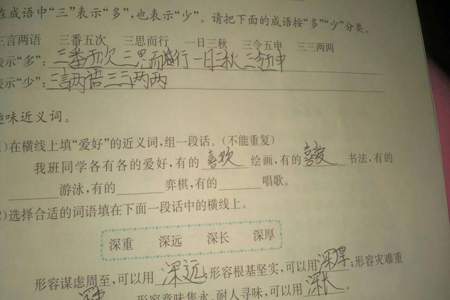 在成语中“三”表示“多”,也表示“少”。请把下面的成语按“多”“少”分类。
三言两语 三番五次 三思而行 一日三秋 三令五申 三三两两
表示“多”: 三番五次 三思而行 一日三秋 三令五申
表示“少”: 三言两语 三三两两
趣味近义词。
)在横线上填“爱好”的近义词,组一段话。(不能重复)
我班同学各有各的爱好,有的 喜欢 绘画,有的 喜爱 书法,有的
游泳,有的 弈棋,有的 唱歌。
)选择合适的词语填在下面一段话中的横线上。
深重 深远 深长 深厚
形容谋虑周至,可以用 深远;形容根基坚实,可以用深厚;形容灾难重
形容意味隽永、耐人寻味,可以用 深长